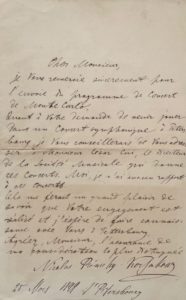 Cher Monsieur,
Je vous remercie sincèrement pour
l'envoi du programme de Concert
de Monte Carlo.
Quant à votre demande de venir jouer
dans un Concert symphonique à Péters-
bourg je vous conseillerais de vous adres-
ser à Monsieur César Cui, le Directeur
de la Société Musicale qui donne
ces concerts. Moi, je n'ai aucun rapport
à ces concerts.
Cela me ferait un grand plaisir de
savoir que votre engagement est
réalisé et j'espère de faire connais-
sance avec vous à Pétersbourg.
Agréez, Monsieur, l'assurance de
ma considération la plus distinguée
Nicolas Rimsky Korsakow
25 1891 St Pétersbourg